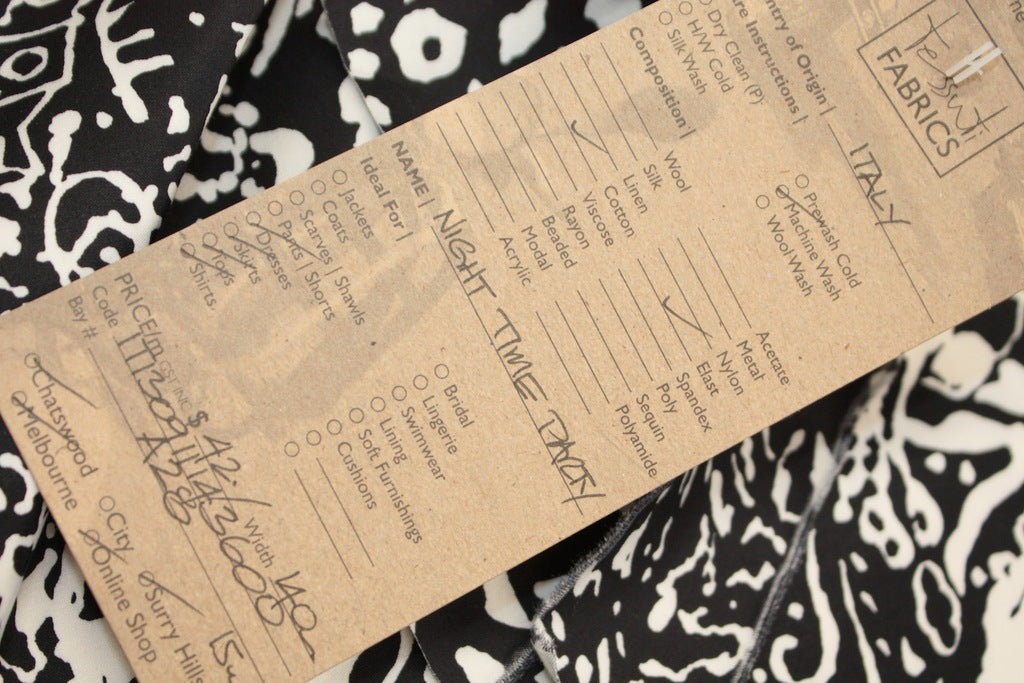 tessuti
FABRICS
ntry of Origin | ITALY
re Instructions |
Dry Clean (P)
H/W Cold
Silk Wash
Prewash Cold
Machine Wash
Wool Wash
Composition |
Wool
Silk
Linen
Cotton
Viscose
Rayon
Beaded
Modal
Acrylic
Acetate
Metal
Nylon
Elast
Spandex
Poly
Sequin
Polyamide
NAME | NIGHT TIME PARTY
Ideal For |
Jackets
Coats
Scarves | Shawls
Pants | Shorts
Dresses
Skirts
Tops
Shirts
Bridal
Lingerie
Swimwear
Lining
Soft Furnishings
Cushions
PRICE/m GST INC $ 42 Width 140
Code
Bay # A28
Chatswood
City
Surry Hills
Melbourne
Online Shop